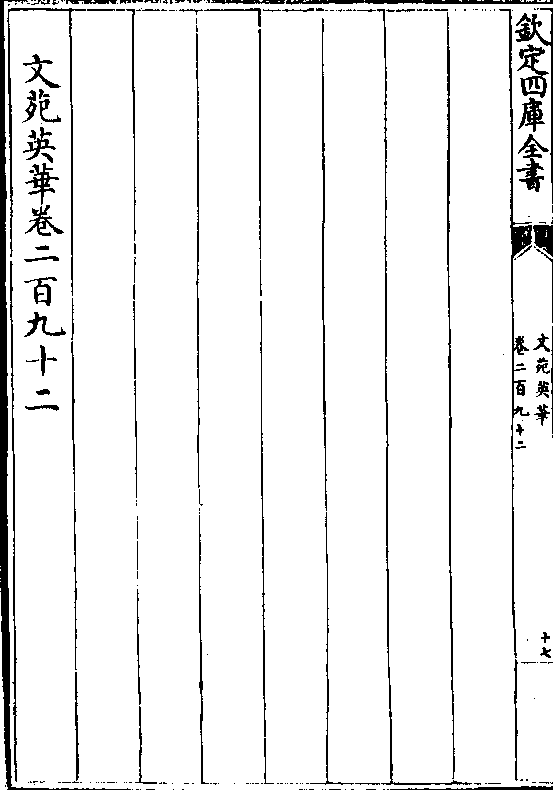 欽定四庫全書
文苑英華
卷二百九十二
十七
文苑英華卷二百九十二